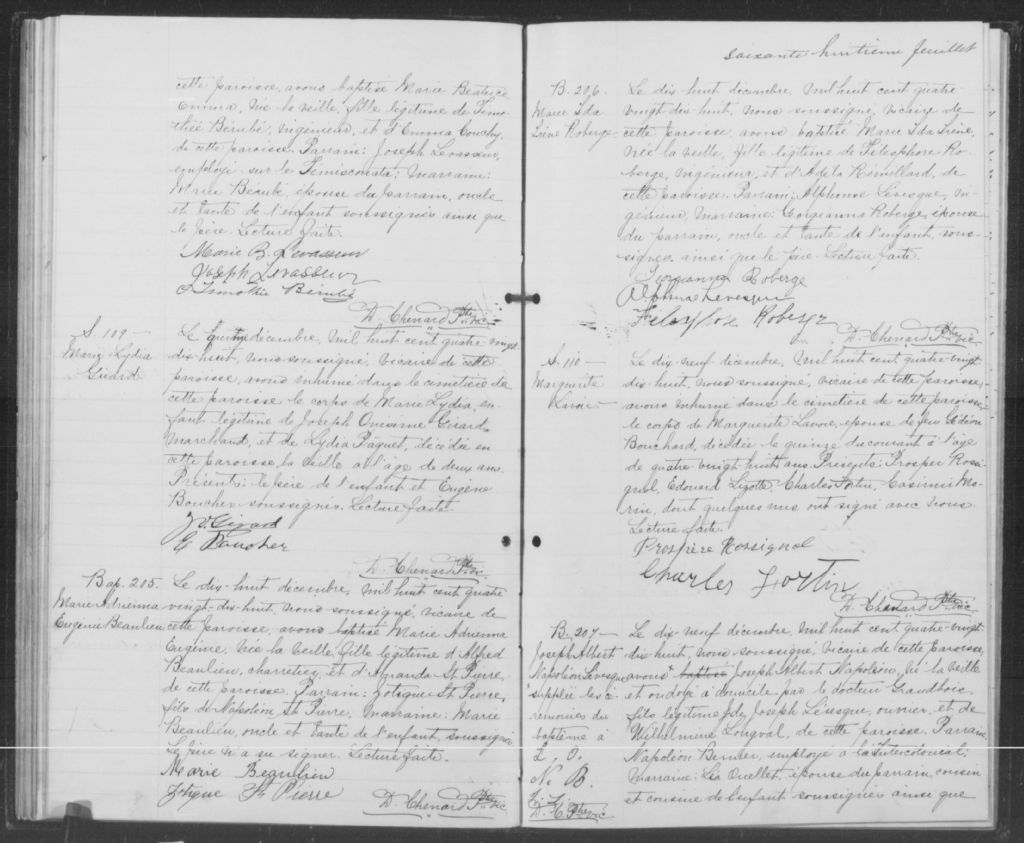 cette paroisse, avons baptisé Marie Béatrice
Emma, née la veille, fille légitime de Timo-
thée Bérubé, ingénieur, et d'Emma
de cette paroisse. Parrain: Joseph Levasseur,
employé sur le Témiscouata; marraine:
Marie Bérubé épouse du parrain, oncle
et tante de l'enfant soussignés ainsi que
le père. Lecture faite.
Marie B. Levasseur
Joseph Levasseur
Timothée Bérubé
D. Chenard Ptre vic
S. 109 —
Marie Lydia
Girard
Le quinze décembre, mil huit cent quatre vingt
dix-huit, nous soussigné, vicaire de cette
paroisse, avons inhumé dans le cimetière de
cette paroisse le corps de Marie Lydia, en-
fant légitime de Joseph Onésime Girard
marchand, et de Lydia Paquet, décédée en
cette paroisse, la veille à l'âge de deux ans.
Présents: le père de l'enfant et Eugène
Boucher soussignés. Lecture faite.
J. O. Girard
E Boucher
D. Chenard Ptre vic
Bap. 205.
Marie Adrienna
Eugénie Beaulieu
Le dix-huit décembre, mil huit cent quatre
vingt-dix-huit, nous soussigné, vicaire de
cette paroisse, avons baptisé Marie Adrienna
Eugénie, née la veille, fille légitime d'Alfred
Beaulieu, charretier, et d'Amanda St Pierre,
de cette paroisse. Parrain: Zotique St Pierre,
fils de Napoléon St Pierre, marraine: Marie
Beaulieu, oncle et tante de l'enfant, soussignés.
Le père n'a su signer. Lecture faite.
Marie Beaulieu
Zotique St Pierre
D. Chenard Ptre vic
Soixante huitième feuillet
B. 206.
Marie Ida
Irène Roberge
Le dix-huit décembre, mil huit cent quatre-
vingt-dix-huit, nous soussigné, vicaire de
cette paroisse, avons baptisé Marie Ida Irène,
née la veille, fille légitime de Télesphore Ro-
berge, ingénieur, et d'Adèle Rémillard, de
cette paroisse. Parrain: Alphonse Lévesque, in-
génieur, marraine: Georgianna Roberge, épouse
du parrain, oncle et tante de l'enfant, sous-
signés ainsi que le père. Lecture faite.
Georgianna Roberge
Alphonse Levesque
Roberge
D. Chenard Ptre vic
S. 110 —
Marguerite
Lavoie —
Le dix-neuf décembre, mil huit cent quatre-vingt
dix-huit, nous soussigné, vicaire de cette paroisse,
avons inhumé dans le cimetière de cette paroisse
le corps de Marguerite Lavoie, épouse de feu Gédéon
Bouchard, décédée le quinze du courant à l'âge
de quatre-vingt-huit ans. Présents: Prosper Rossi-
gnol, Edouard Lizotte, Charles Fortin, Casimir Mo-
rin, dont quelques uns ont signé avec nous.
Lecture faite.
Prospère Rossignol
Charles Fortin
D. Chenard Ptre vic
B. 207 —
Joseph Albert
Napoléon Levesque
suppléé les cé-
rémonies du
baptême à
L, O.
N. B.
D. C. Ptre vic
Le dix-neuf décembre, mil huit cent quatre-vingt
dix-huit, nous soussigné, vicaire de cette paroisse,
avons baptisé Joseph Albert Napoléon, né la veille
et ondoyé à domicile par le docteur Grandbois
fils légitime de Joseph Lévesque, ouvrier, et de
Wilhelmine Longval, de cette paroisse. Parrain
Napoléon Bernier, employé à l'Intercolonial;
marraine: Léa Ouellet, épouse du parrain, cousin
et cousine de l'enfant soussignés ainsi que